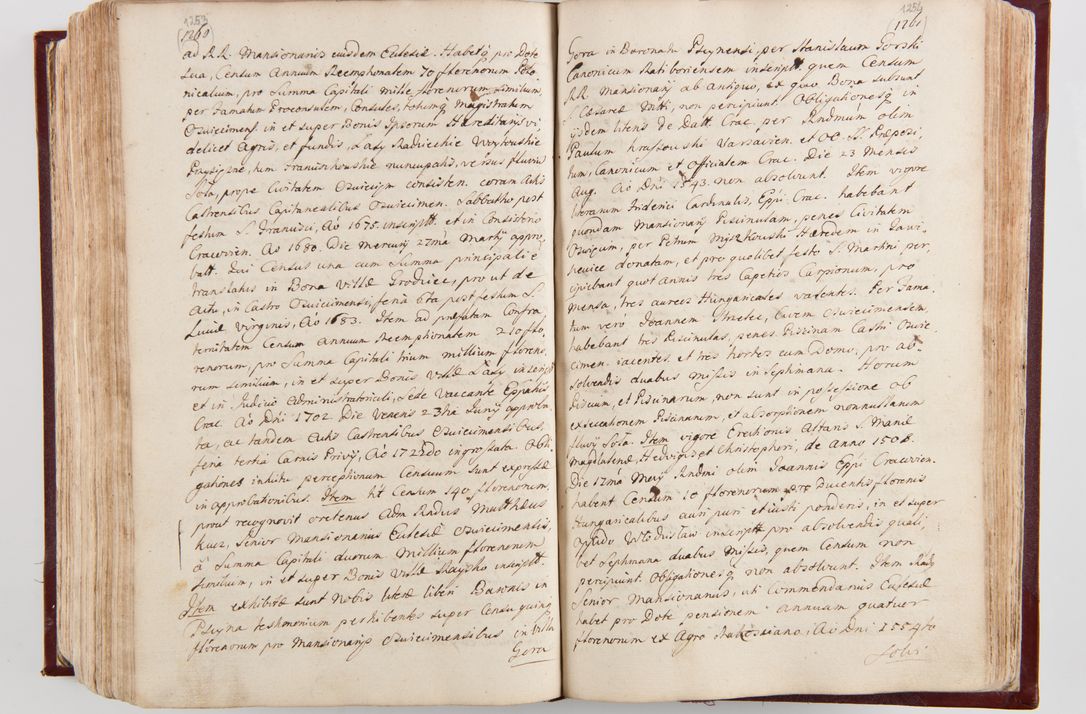 1253
1260
ad R.R. Mansionarios eiusdem Ecclesiæ. Habetq pro Dote
sua, Censum Annuum Reemptionalem 70 florenorum Polo
nicalium, pro Summa Capitali mille florenorum similium,
per Famatum Proconsulem, Consules, totumq Magistratum
Osviecimens in et super Bonis Ipsorum Hæreditarijs vi
delicet Agris, et fundis, Lasy Radieckie Woytowskie
nuncupatis, versus fluviu
Sola, prope Civitatem Osviecim consisten. coram Actis
Castrensibus Capitanealibus Osviecimen. Sabbatho post
festum S. Francisci, Aò 1675. inscriptt et in Consistorio
Cracovien. Aò 1680. Die Mercurij 27mâ Martij appro
batt. Qui Census una cum Summa principali e
translatus in Bona Villæ Grodziec, prout de
Actu, in Castro Osviecimensi, feria 6ta post festum S.
Luciæ Virginis, Aò 1683. Item ad præfatam Confra
ternitatem Censum Annuum Reemptionalem 210 flo
renorum, pro Summa Capitali trium millium floreno
rum similium, in et super Bonis Villæ Lasy inscript
et in Judicio Administratoriali, Sede Vacante Eppatus
Crac. Aò Dni 1702. Die Veneris 23tia Junij approba
ta, ac tandem Actis Castrensibus Osviecimensibus,
feria tertia Carnis Privij, Aò 1722do ingrossata. Obli
gationes intuitu perceptionum Censuum sunt expressæ
in approbationibus. Item ht Censum 140 florenorum,
prout recognovit oretenus Adm Rndus Matthæus
Kucz, Senior Mansionarius Ecclesiæ Osviecimensis,
à Summa Capitali duorum Millium florenorum
similium, in et super Bonis Villæ inscriptt.
Item exhibitæ sunt Nobis literæ liberi Baronis in
Pszyna testimonium perhibentes super Censu quinq
florenorum pro Mansionarijs Osviecimensibus in Villa
Gora

1254
1261
Gora in Baronatu Psznensi, per Stanislaum Gorski
Canonicum Ratiboriensem inscriptt, quem Censum
R.R. Mansionarij ab antiquo, ex quo Bona subsunt
S. Cæsareæ Mtti, non percipiunt Obligationesq in
ijsdem literis de Datt. Crac. per Rndmum olim
Paulum Varsavien. et OO. SS. Præposi
tum, Canonicum et Officialem Crac. Die 23 Mensis
Aug. Aò Dni 1543. non absolvunt. Item vigore
literarum Friderici Cardinalis, Eppi Crac. habebant
quondam Mansionarij Piscinulam, penes Civitatem
Oswiecim, per Petrum Myszkowski Hæredem in
donatam, et pro quolibet festo S. Martini per
cipiebant quot annis tres Capetios Carpionum, pro
mensa, tres aureos Hungaricales valentes. Per Fama
tum verò Joannem Civem Osviecimensem,
habebant tres Piscinulas, penes Piscinam Castri Osvie
cimen. iacentes. et tres hortos cum Domo, pro ab
solvendis duabus Missis in Septimana. Horum
Piscium, et Piscinarum, non sunt in possessione ob
exsiccationem Piscinarum, et absorptionem nonnullarum
fluvij Sola. Item vigore Erectionis Altaris S. Mariæ
Magdalenæ, Hedvigis, et Christophori, de Anno 1508.
Die 12mâ Maij Rndmi olim Joannis Eppi Cracovien.
habent Censum 10 florenorum pro Ducentis florenis
Hungaricalibus auri puri et iusti ponderis, in et super
Oppido Wlodislaw inscriptt pro absolvendis quoli
bet Septimana duabus Missis, quem Censum non
percipiunt. Obligationesq non absolvunt. Item Rndus
Senior Mansionarius, uti Commendarius Ecclesiæ
habet pro Dote pensionem annuam quatuor
florenorum ex Agro Aò Dni 1554to
Solvi